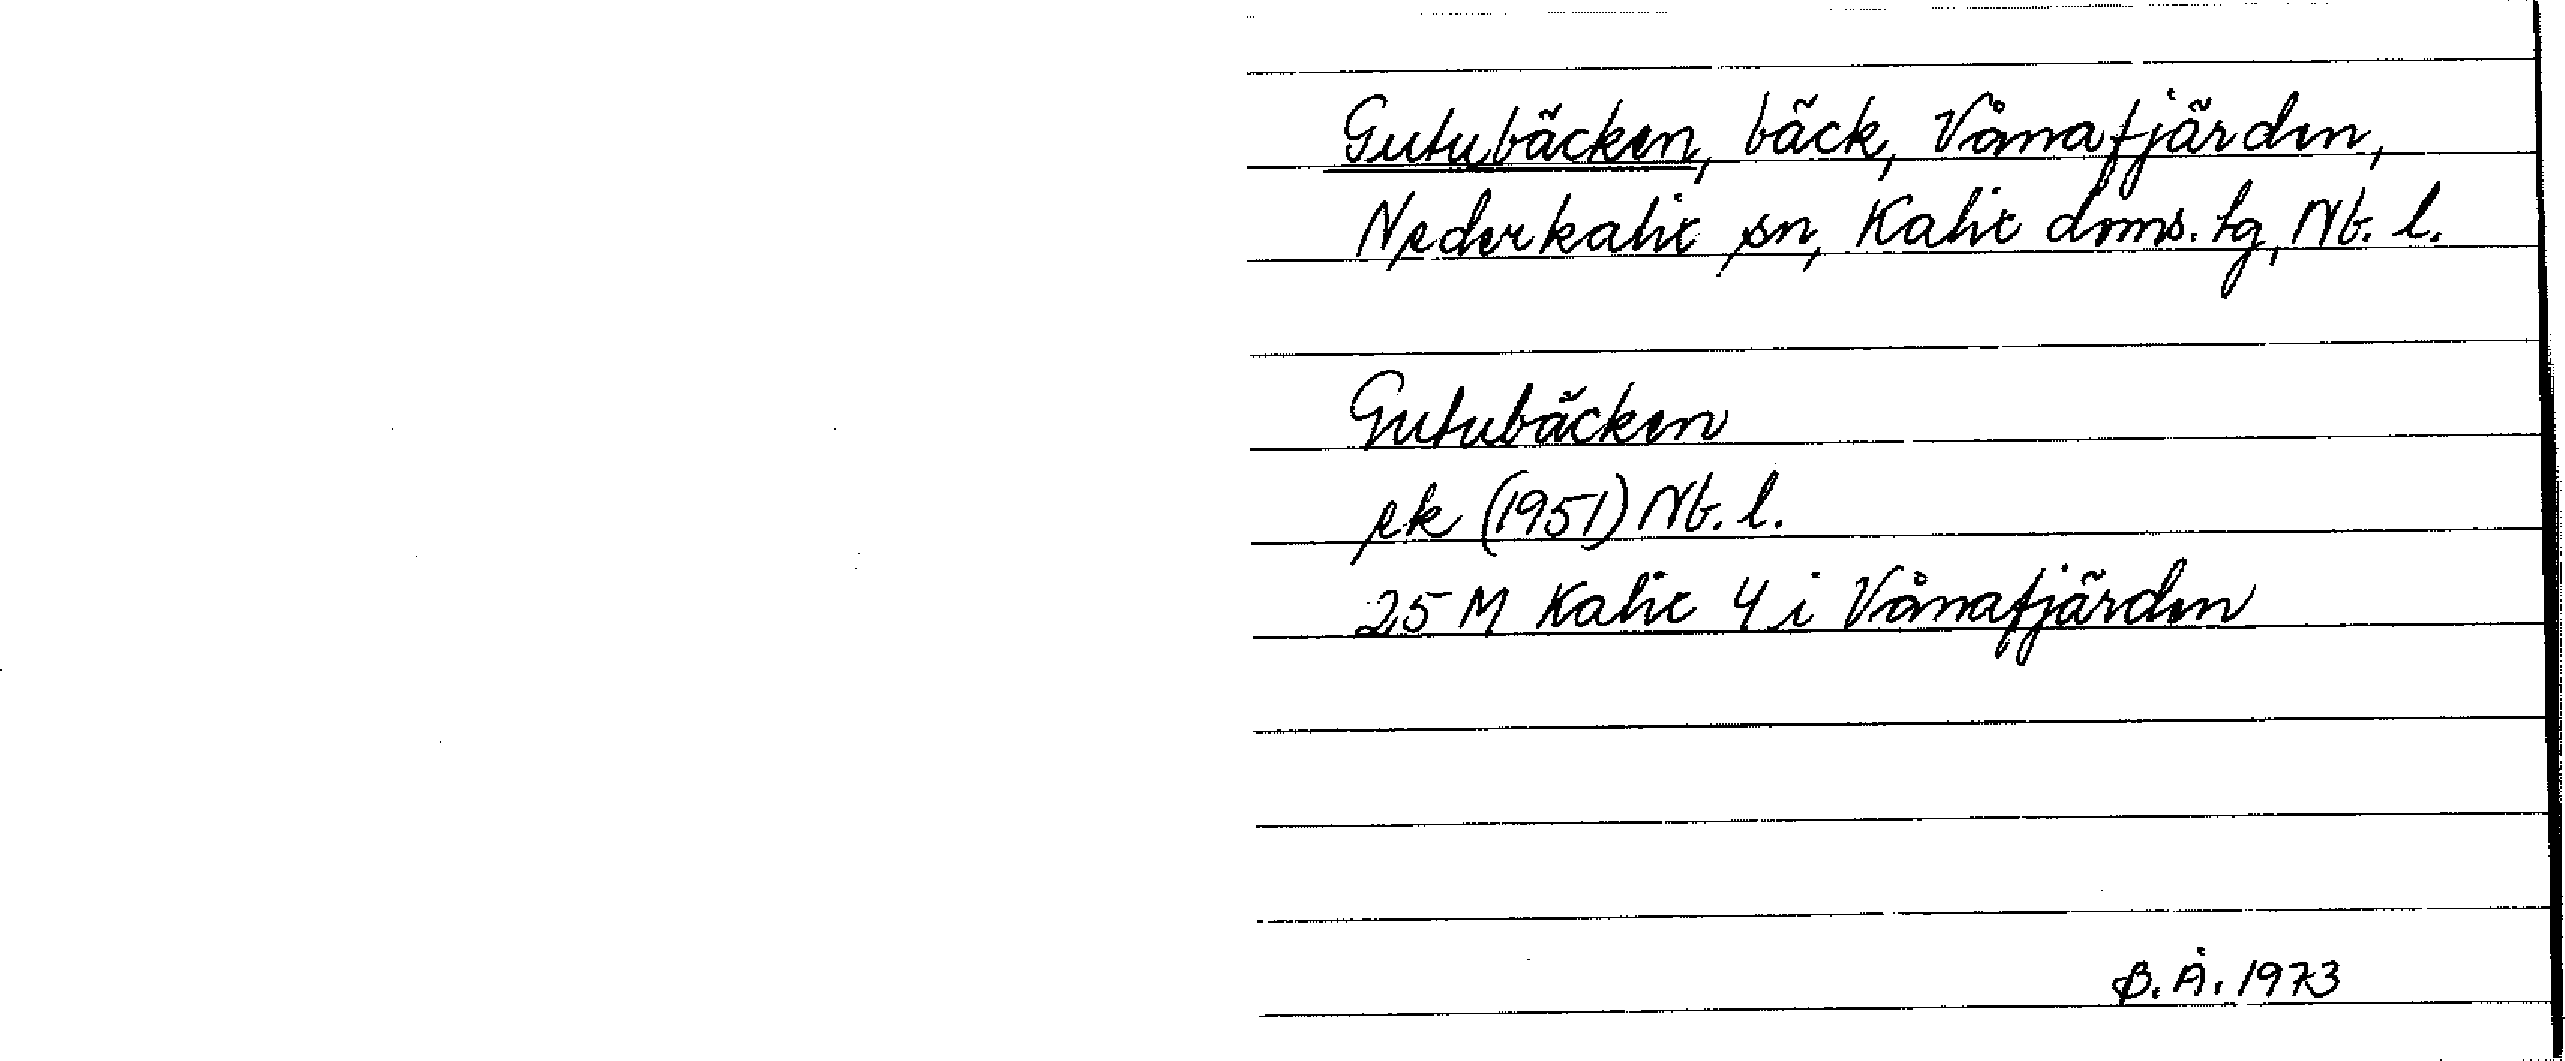 Gutubäcken, bäck, Vånafjärden,
Nederkalix sn, Kalix doms. tg, Nb. l.
Gutubäcken
ek (1951) Nb. l.
25 M Kalix 4 i Vånafjärden
B. Å. 1973